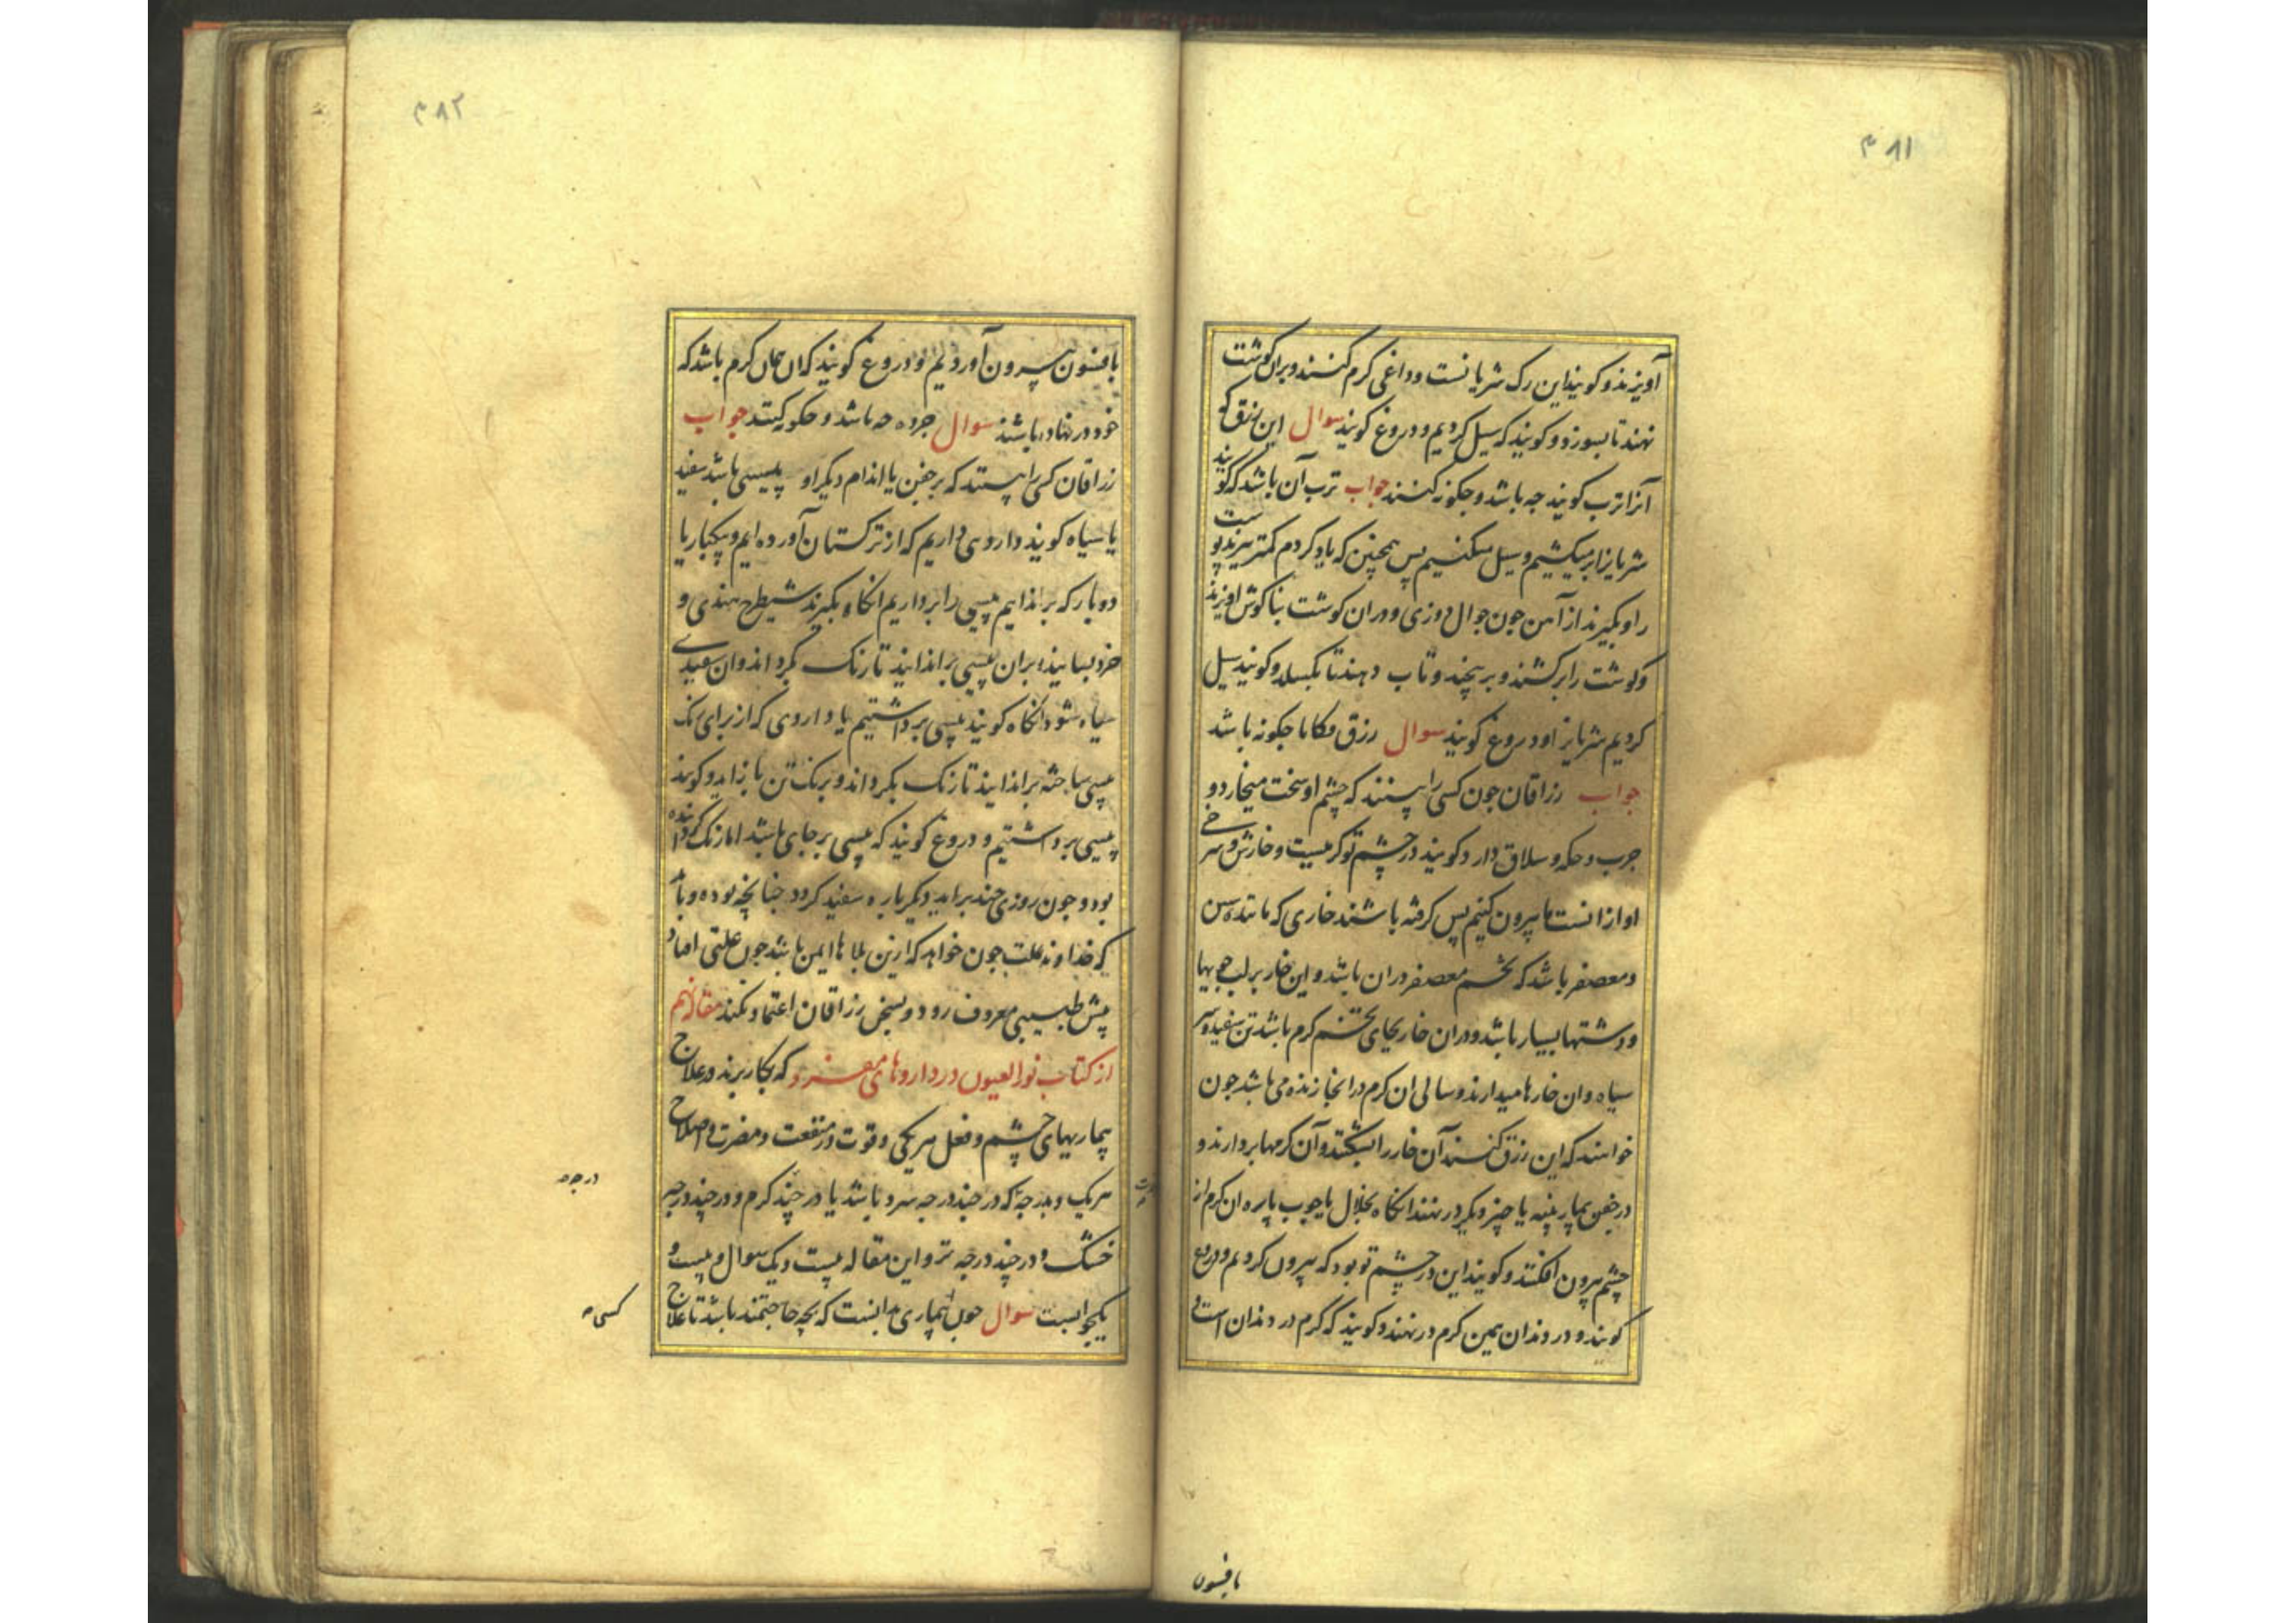 ۴۸۱
آویزند و کویند این رک شریانست و داغی کرم کنند و بران کوشت
نهند تا بسوزد و کویند که سیل کردیم و دروغ کویند سوال این زرق که
آنرا ترب کویند جه باشد و جکونه کنند جواب ترب آن باشد که کویند
شریانرا برمیکشیم و سیل میکنیم پس همچنین که یاد کردم کمتر سربند پوست
را و بکیرند از آهن جون جوال دوزی و دران کوشت بناکوش اویزند
و کوشت را برکشند و بر پیچند و تاب دهند تا بکسلد و کویند سیل
کردیم شریانز او دروغ کویند سوال رزق مکاما جکونه باشد
جواب رزاقان جون کسی را بینند که چشم او سخت میخارد و
جرب و حکه و سلاق دارد کویند در چشم تو کرمیست و خارش و سرخی
او ازانست ما بیرون کنیم پس کرفته باشند خاری که مانند
و معصفر باشد که تخم معصفر دران باشد و این خار بر لب جویها
و دشتها بسیار باشد و دران خار بجای تخم کرم باشد تن سفید و سر
سیاه و ان خارها میدارند و سالی ان کرم در انجا زنده می باشد جون
خواهند که این رزق کنند آن خار را بشکنند و آن کرمها بردارند و
در جفن بیمار پنبه یا چیز دیکر در نهند انکاه بخلال یا چوب پاره ان کرم از
چشم بیرون افکنند و کویند این در چشم تو بود که بیرون کردیم و دروغ
کویند و در دندان همین کرم در نهند و کویند که کرم در دندان است و
بافسون
۴۸۲
بافسون بیرون آوردیم و دروغ کویند که ان همان کرم باشد که
خود در نهاده باشند سوال جرده جه باشد و جکونه کنند جواب
زراقان کسی را بینند که بر جفن یا اندام دیکر او پیسی باشد سفید
یا سیاه کویند داروی داریم که از ترکستان آورده ایم و یکبار یا
دو بار که براندایم پیسی را برداریم انکاه بکیرند شیطرج هندی و
خرد بسایند و بران پیسی براندایند تا رنک بکرداند و ان سفیدی
سیاه شود انکاه کویند پیسی برداشتیم یا داروی که از برای رنک
پیسی ساخته براندایند تا رنک بکرداند و برنک تن باز اید و کویند
پیسی برداشتیم و دروغ کویند که پیسی بر جای باشد اما رنک کردانیده
بود و جون روزی چند براید دیکرباره سفید کردد جنانچه بوده و باید
که خداوند علت جون خواهد که ازین بلاها ایمن باشد جون علتی افتاد
پیش طبیبی معروف رود و بسخن رزاقان اعتماد نکند مقاله نهم
از کتاب نور العیون در داروهای مفرد که بکار برند در علاج
بیماریهای چشم و فعل هر یکی و قوت و منفعت و مضرت و اصلاح
هر یک و بدرجه که در چند درجه سرد باشد یا در چند کرم و در چند درجه
خشک و در چند درجه تر و این مقاله بیست و یک سوال و بیست و
یکجوابست سوال جون بیماری دانست که بچه حاجتمند باشد تا علاج
درجه
کسی